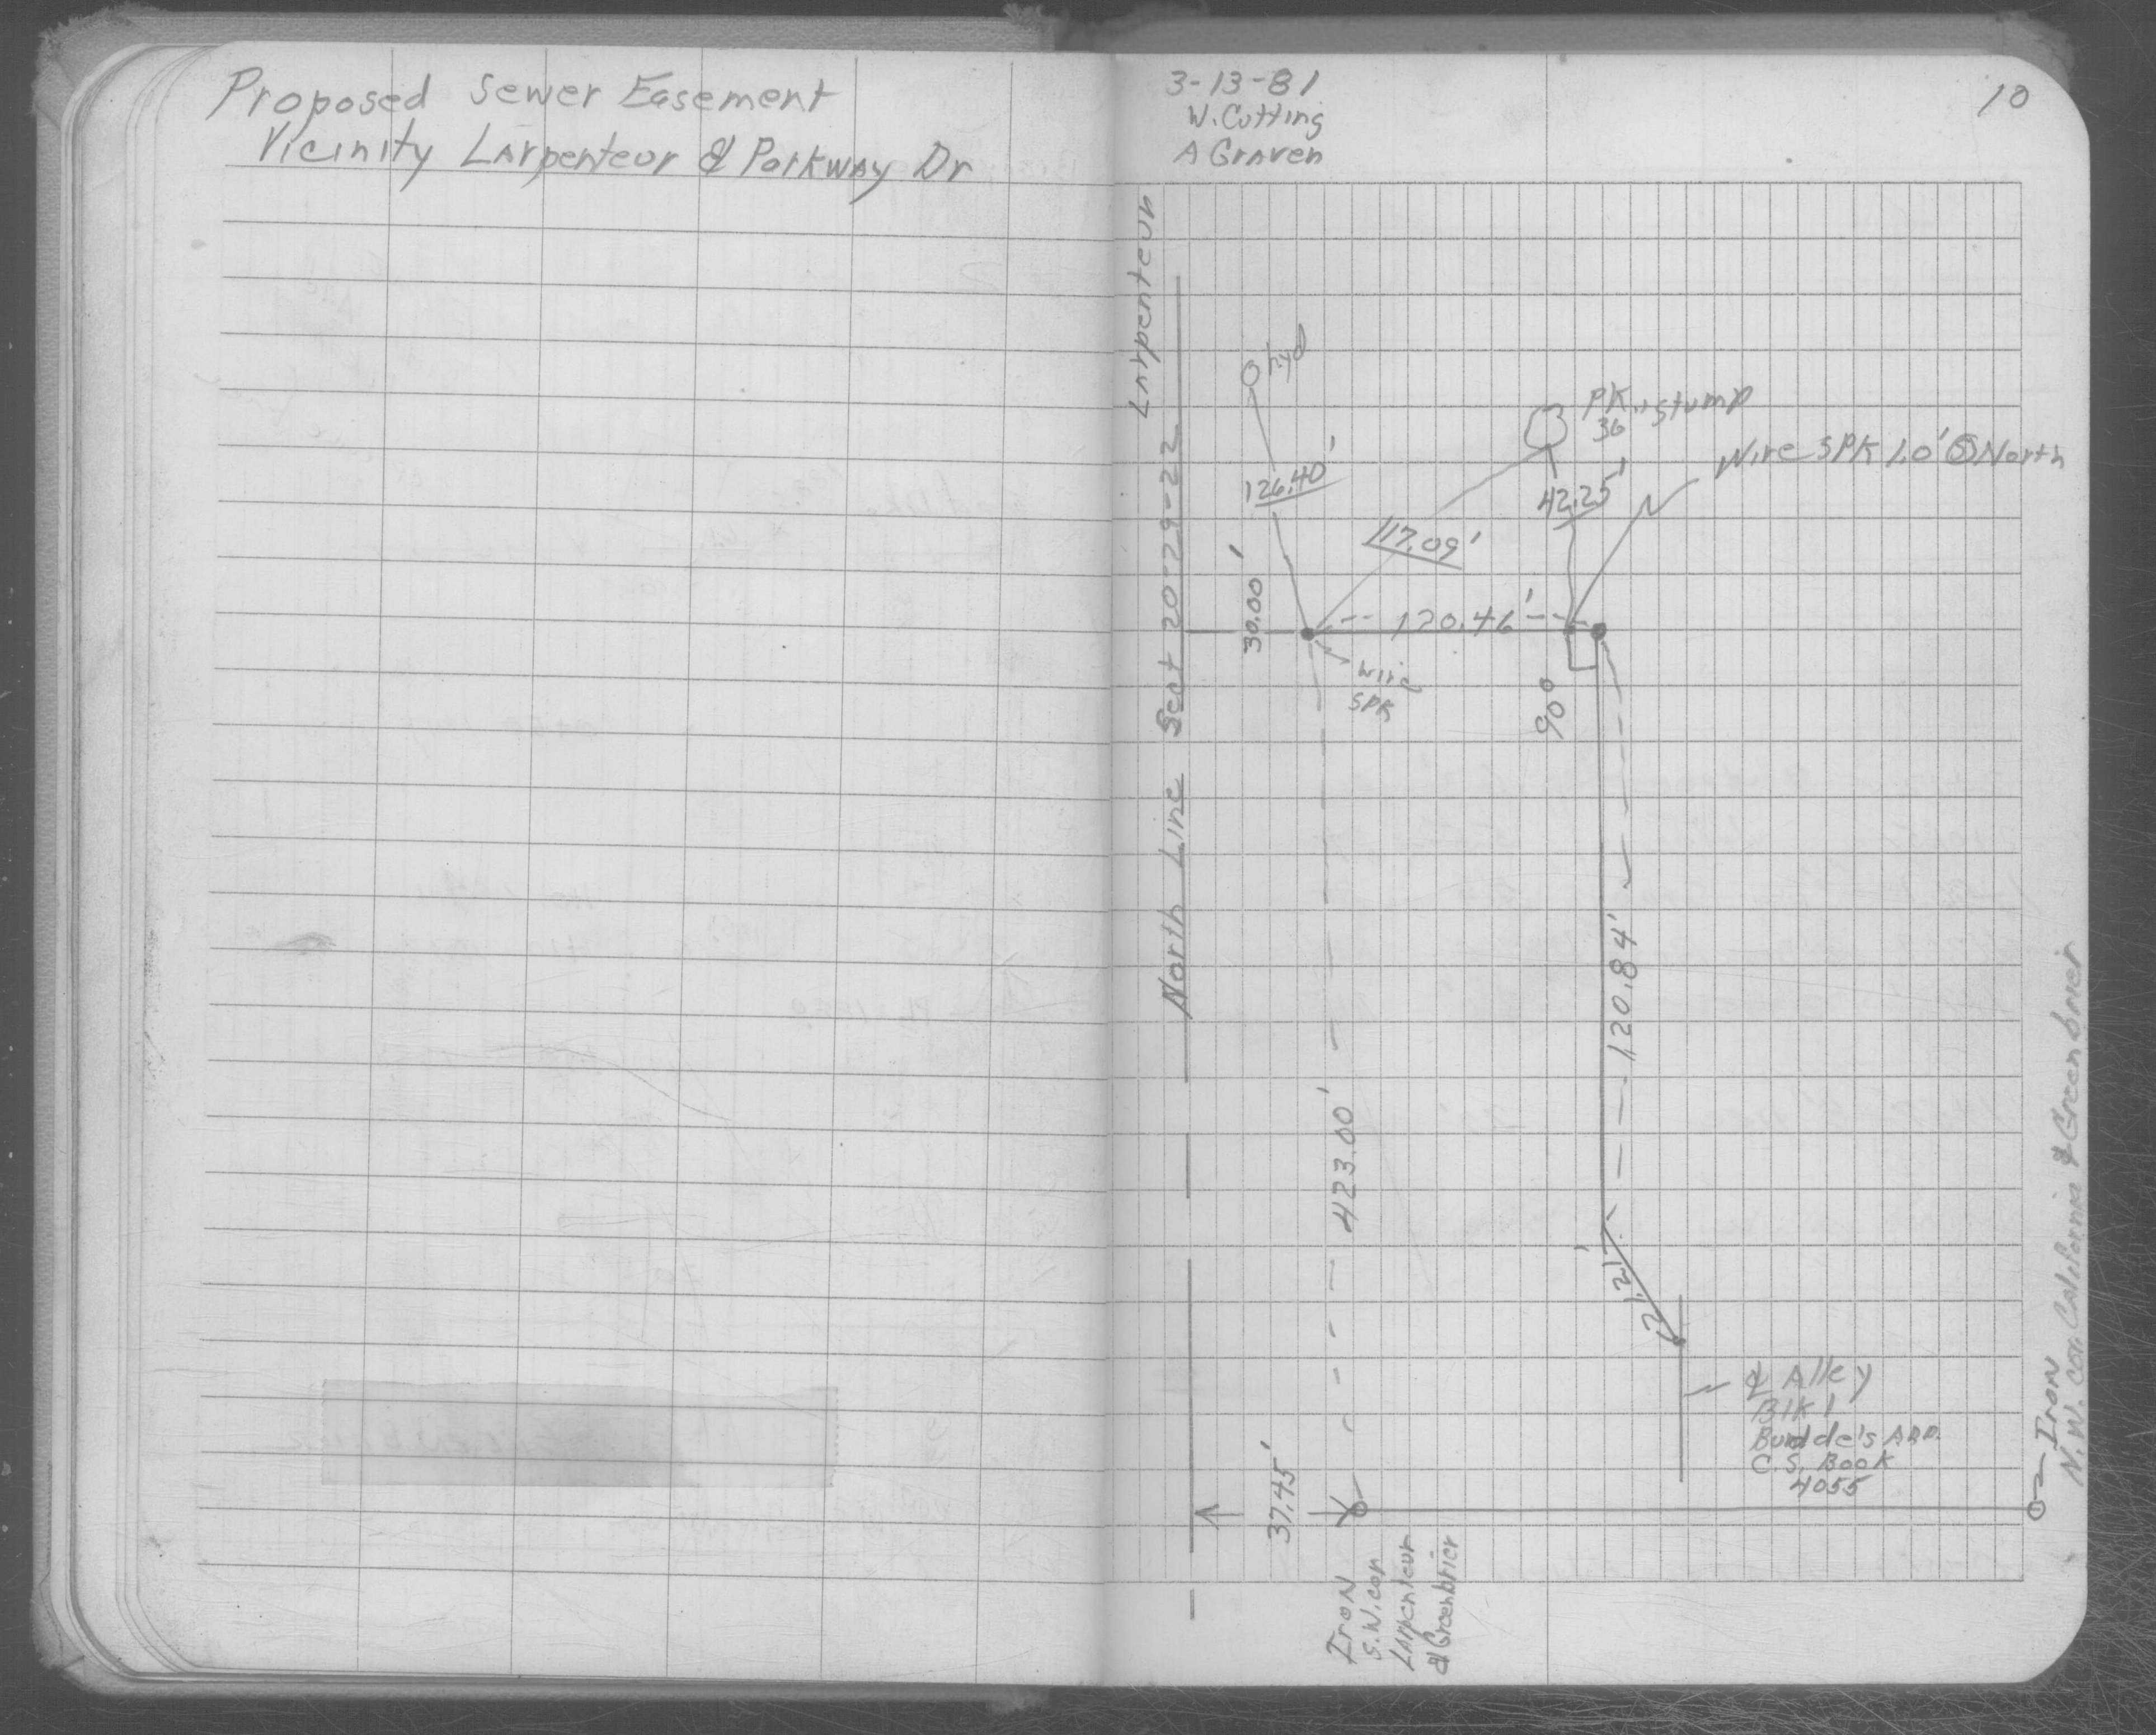 Proposed Sewer Easement
Vicinity Larpenteur & Parkway Dr
3-13-81
W. Cutting
A Graven
10
Larpenteur
North Line Sect 20-29-22
hyd
126.40'
PK
36" stump
Wire SPK 1.0' North
42.25'
117.09'
30.00'
120.46'
wire
SPK
90°
120.84'
423.00'
21.21'
℄ Alley
Blk 1
Budde's ADD.
C.S. Book
4055
37.45'
IRON
S.W. cor
Larpenteur
& Greenbrier
IRON
N.W. cor. California & Greenbrier